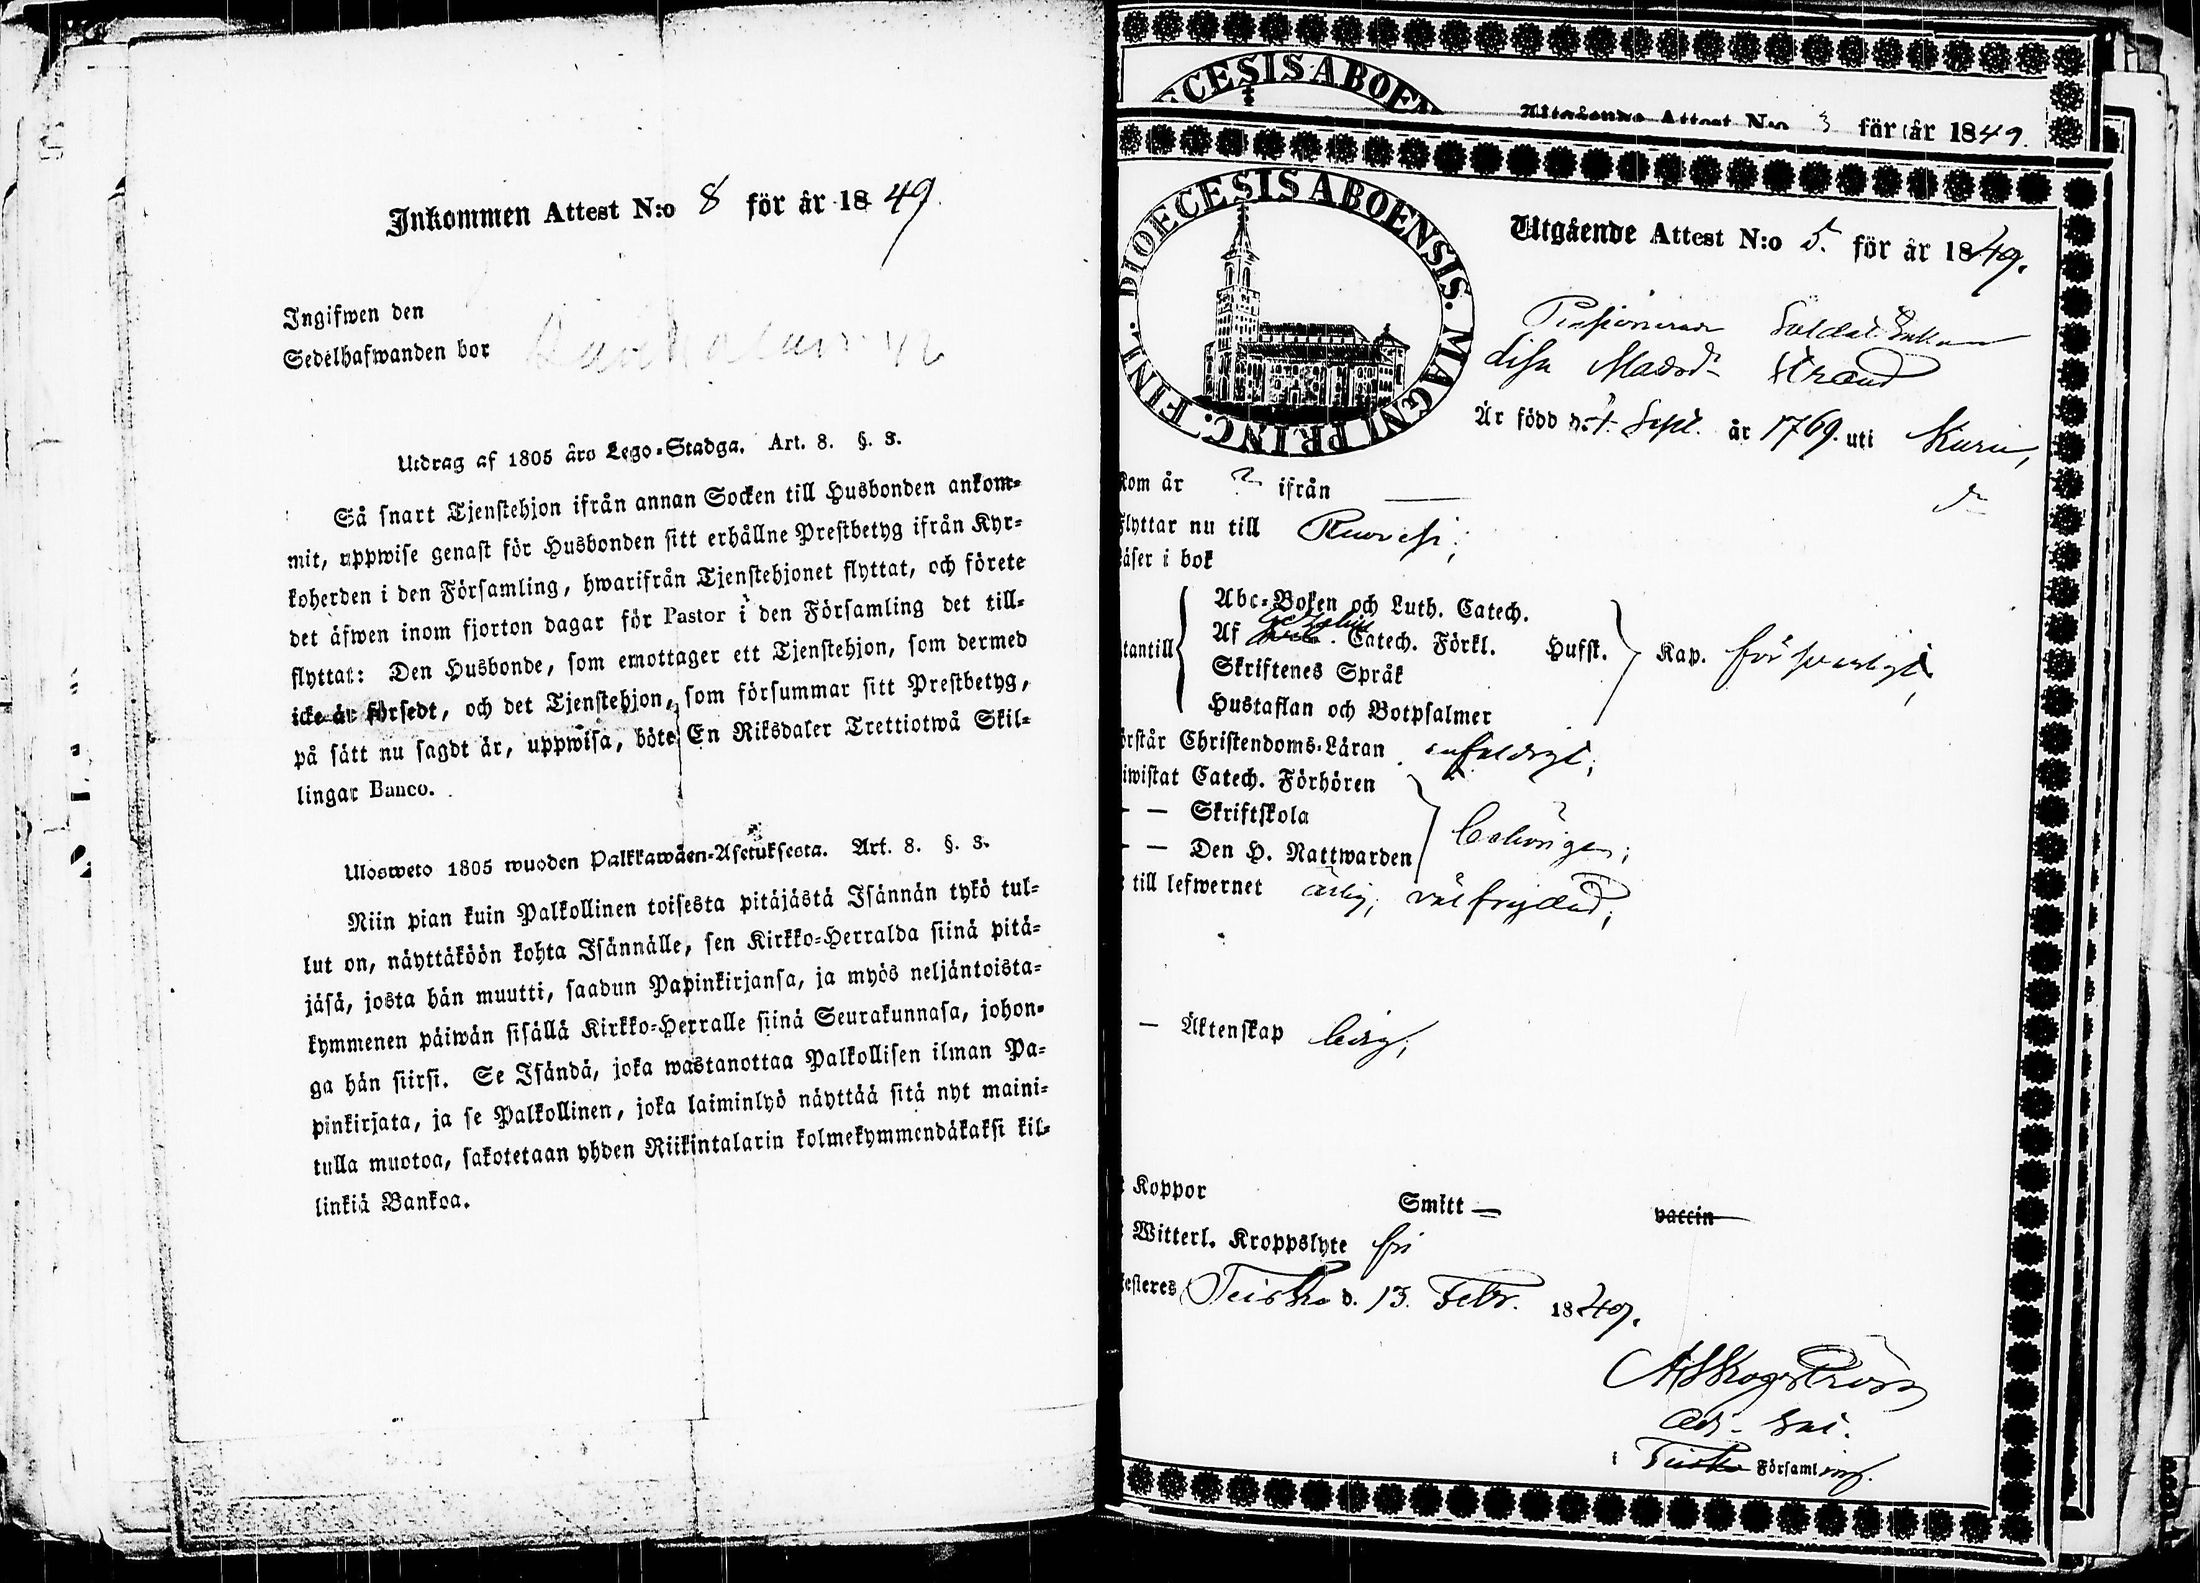 Inkommen Attest N:o 8 för år 1849.
Ingifwen den
Sedelhafwanden bor
Utdrag af 1805 års Lego-Stadga. Art. 8. §. 3.
Så snart Tjenstehjon ifrån annan Socken till Husbonden ankom-
mit, uppwise genast för Husbonden sitt erhållne Prestbetyg ifrån Kyr-
koherden i den Församling, hwarifrån Tjenstehjonet flyttat, och förete
det äfwen inom fjorton dagar för Pastor i den Församling det till-
flyttat: Den Husbonde, som emottager ett Tjenstehjon, som dermed
icke är försedt, och det Tjenstehjon, som försummar sitt Prestbetyg,
på sätt nu sagdt är, uppwisa, böte En Riksdaler Trettiotwå Skil-
lingar Banco.
Ulosweto 1805 wuoden Palkkawäen-Asetuksesta. Art. 8. §. 3.
Niin pian kuin Palkollinen toisesta pitäjästä Isännän tykö tul-
lut on, näyttäköön kohta Isännälle, sen Kirkko-Herralda siinä pitä-
jäsä, josta hän muutti, saadun Papinkirjansa, ja myös neljäntoista-
kymmenen päiwän sisällä Kirkko-Herralle siinä Seurakunnasa, johon-
ga hän siirsi. Se Isändä, joka wastanottaa Palkollisen ilman Pa-
pinkirjata, ja se Palkollinen, joka laiminlyö näyttää sitä nyt maini-
tulla muotoa, sakotetaan yhden Riikintalarin kolmekymmendäkaksi kil-
linkiä Bankoa.
ŒCESIS ABOEN
Utgående Attest N:o 3 för år 1849.
DIOECESIS ABOENSIS. MAGNI PRINC. FINL.
Utgående Attest N:o 5. för år 1849.
Soldat Enkan
Lisa Madsdr Strand
Är född d. 1. Sept. år 1769. uti Kuru,
Kom år ? ifrån —
Flyttar nu till Ruovesi;
Läser i bok
Abc-Boken och Luth. Catech.
Af Catech. Förkl. Hufst.
Skriftenes Språk
Hustaflan och Botpsalmer
utantill Kap. försvarligt,
örstår Christendoms-Läran enfaldigt;
iwistat Catech. Förhören
— — Skriftskola
— — Den H. Nattwarden behörigen;
till lefwernet ärlig; välfrejdad;
— Äktenskap ledig;
Koppor Smitt — vaccin
Witterl. Kroppslyte fri
testeres Teisko d. 13. Febr. 1849.
i Teisko Församling.